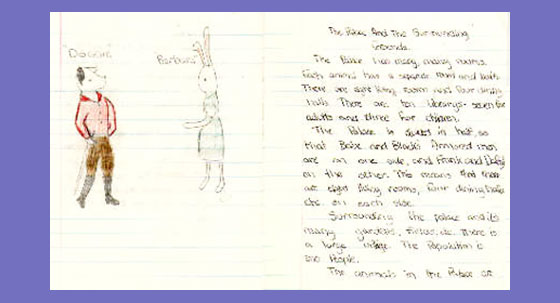 "Doggie"
"Barbara"
The Palace And The Surrounding
Grounds
The Palace has many, many rooms.
Each animal has a separate room and bath.
There are eight living rooms and four dining
halls. There are ten librarys - seven for
adults and three for children.
The Palace is divided in half, so
that Babe and Black's Armored men
are on one side, and Frank and
on the other. This means that there
are eight living rooms, four dining halls
etc. on each side.
Surrounding the palace and its
many gardens, etc. There is
a large village. The Population is
200 People.
The animals in the Palace are